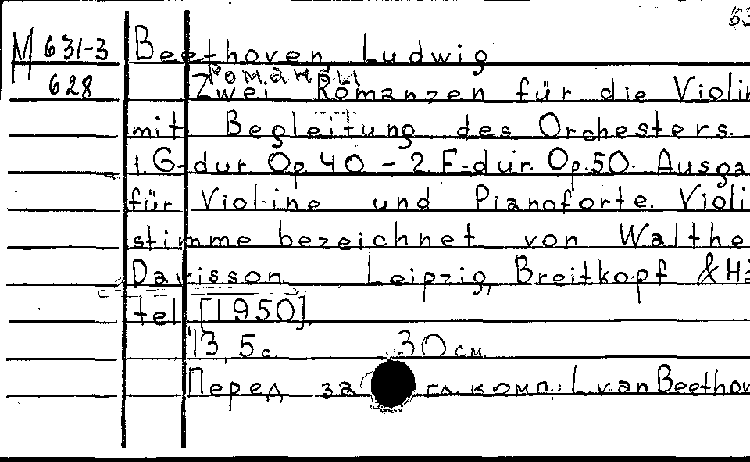 63
M 631-3 Beethoven Ludwig
Романсы
628 Zwei Romanzen für die Violin
mit Begleitung des Orchesters.
1. G-dur Op. 40 - 2. F-dur. Op. 50. Ausga
für Violine und Pianoforte. Violi
stimme bezeichnet von Walthe
Davisson Leipzig, Breitkopf & Hä
tel [1950]
13, 5 с. 30 см
Перед комп.: L. van Beethov